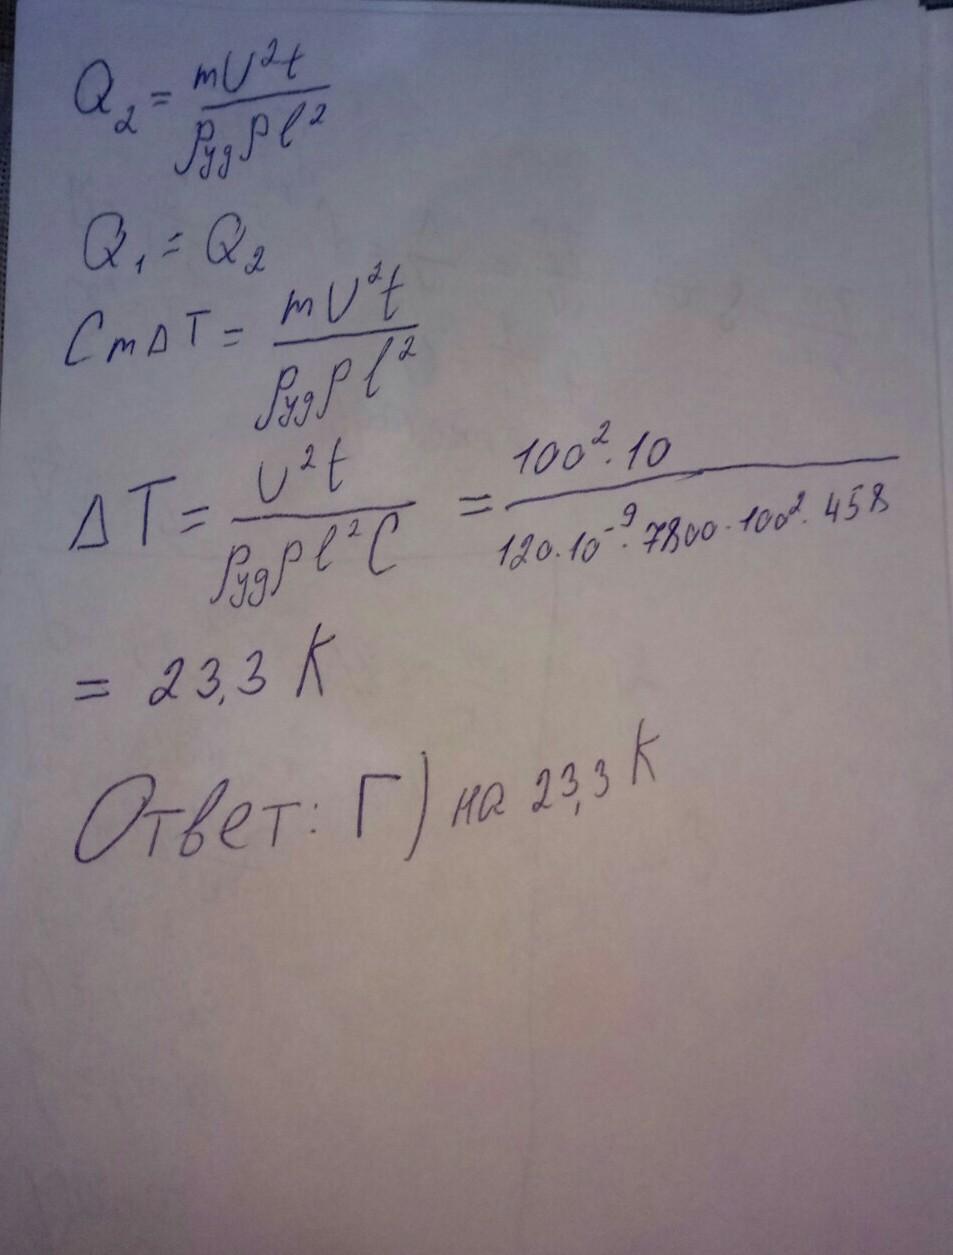 Q₂ = mU²t / ρудρl²
Q₁ = Q₂
CmΔT = mU²t / ρудρl²
ΔT = U²t / ρудρl²C = 100²·10 / 120·10⁻⁹·7800·100²·458
= 23,3 K
Ответ: Г) на 23,3 K